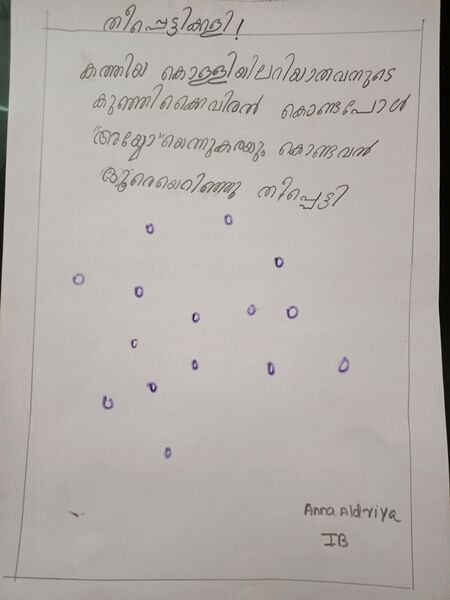 തീപ്പെട്ടിക്കളി!
കത്തിയ കൊള്ളിയിലറിയാതവനുടെ
കുഞ്ഞിക്കൈവിരൽ കൊണ്ടപോൾ
"അയ്യോ"യെന്നുകരയും കൊണ്ടവൻ
ദൂരെയെറിഞ്ഞു തീപ്പെട്ടി
Anna Aldriya
IB